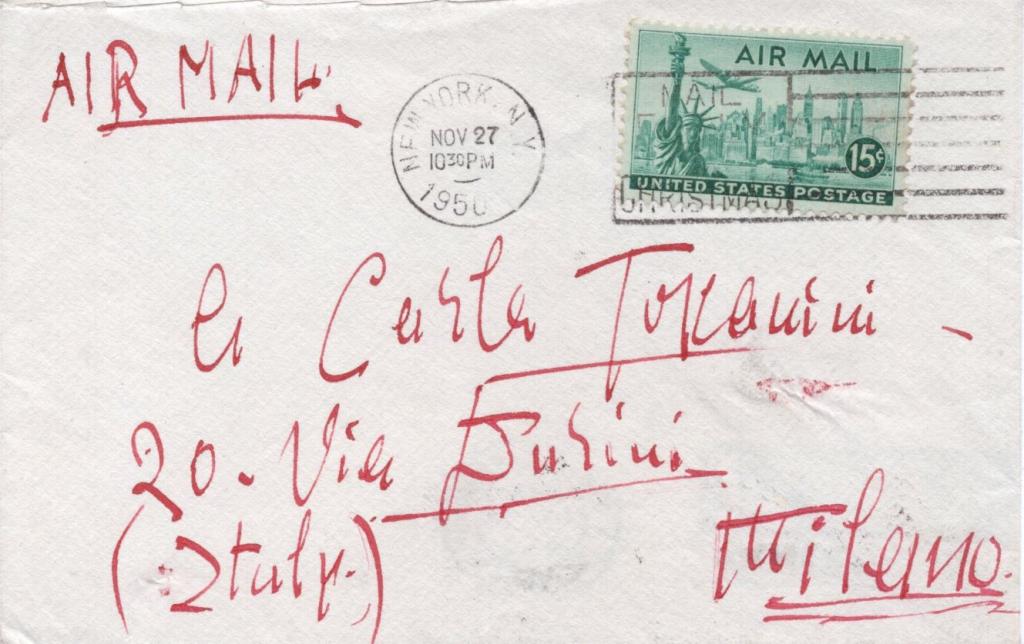 AIR MAIL.
NEW YORK, N.Y.
NOV 27
10 30 PM
1950
AIR MAIL
15¢
UNITED STATES POSTAGE
MAIL
CHRISTMAS
a Carla Toscanini -
20. Via Durini
(Italy.)
Milano.